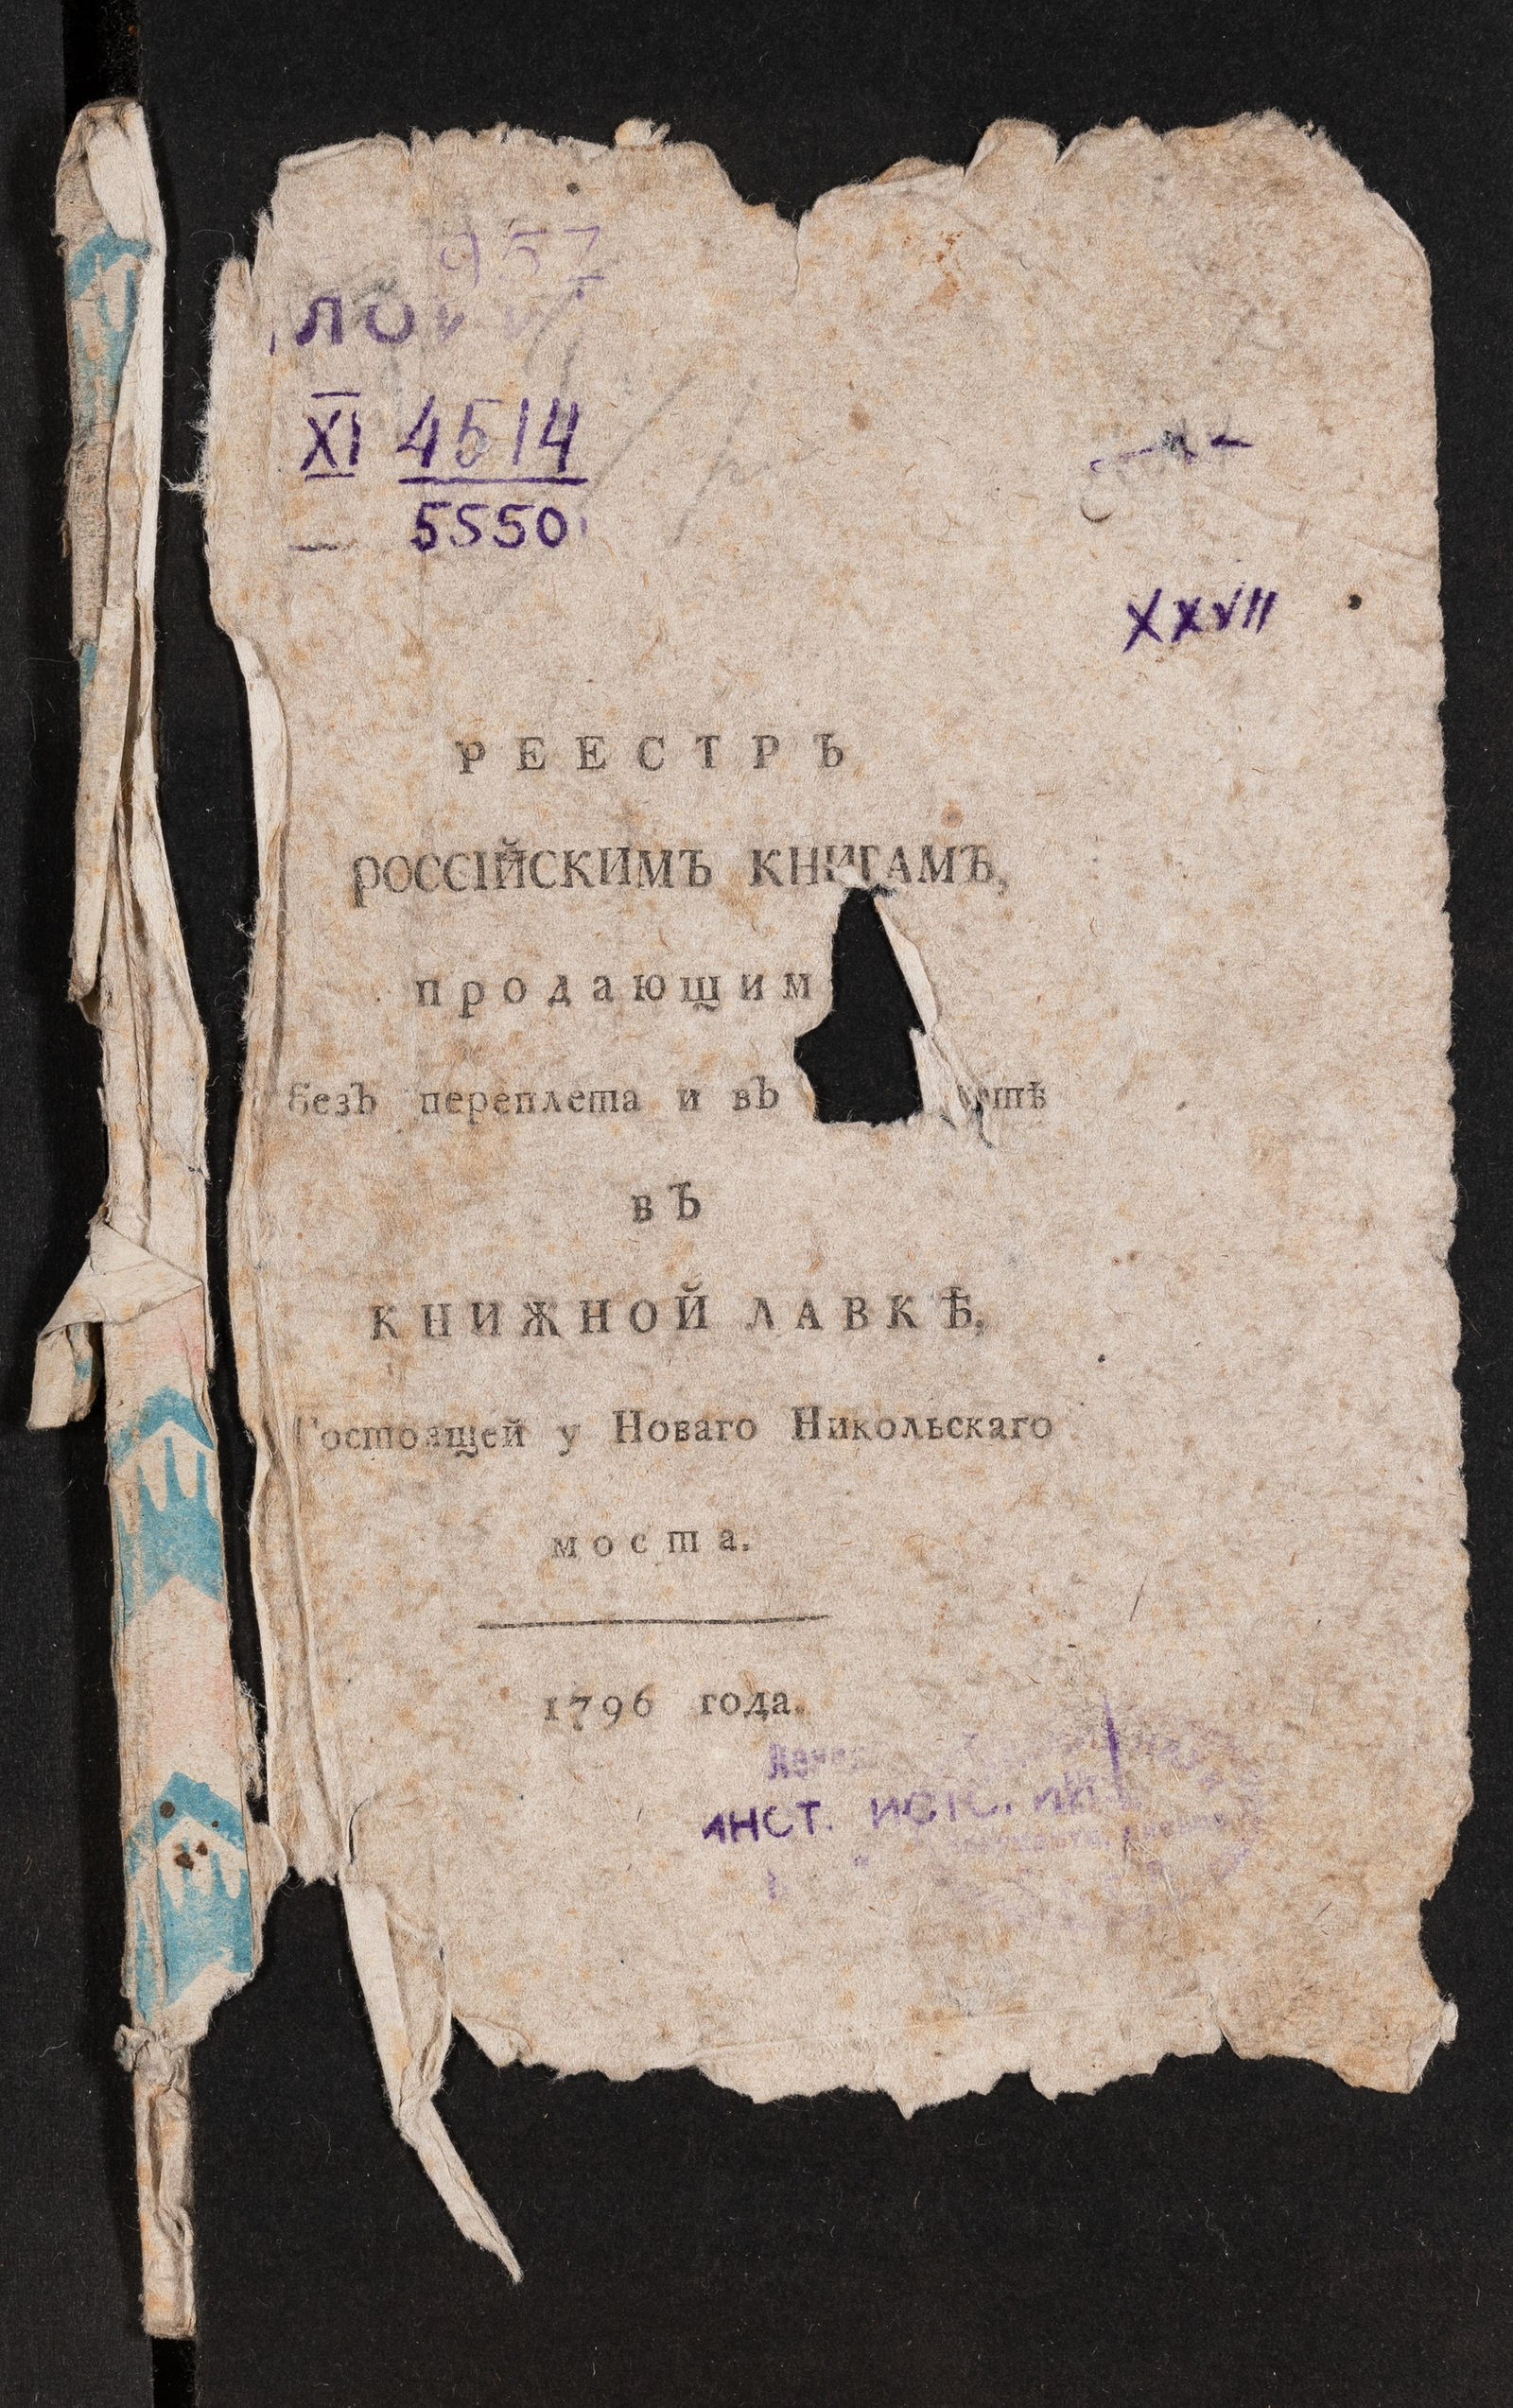 957
ЛОИИ
XI 4514
5550
XXVII
РЕЕСТРЪ
РОССІЙСКИМЪ КНИГАМЪ,
продающим
безъ переплета и въ
въ
КНИЖНОЙ ЛАВКѢ,
состоящей у Новаго Никольскаго
моста.
1796 года.
ИНСТ. ИСТОРИИ